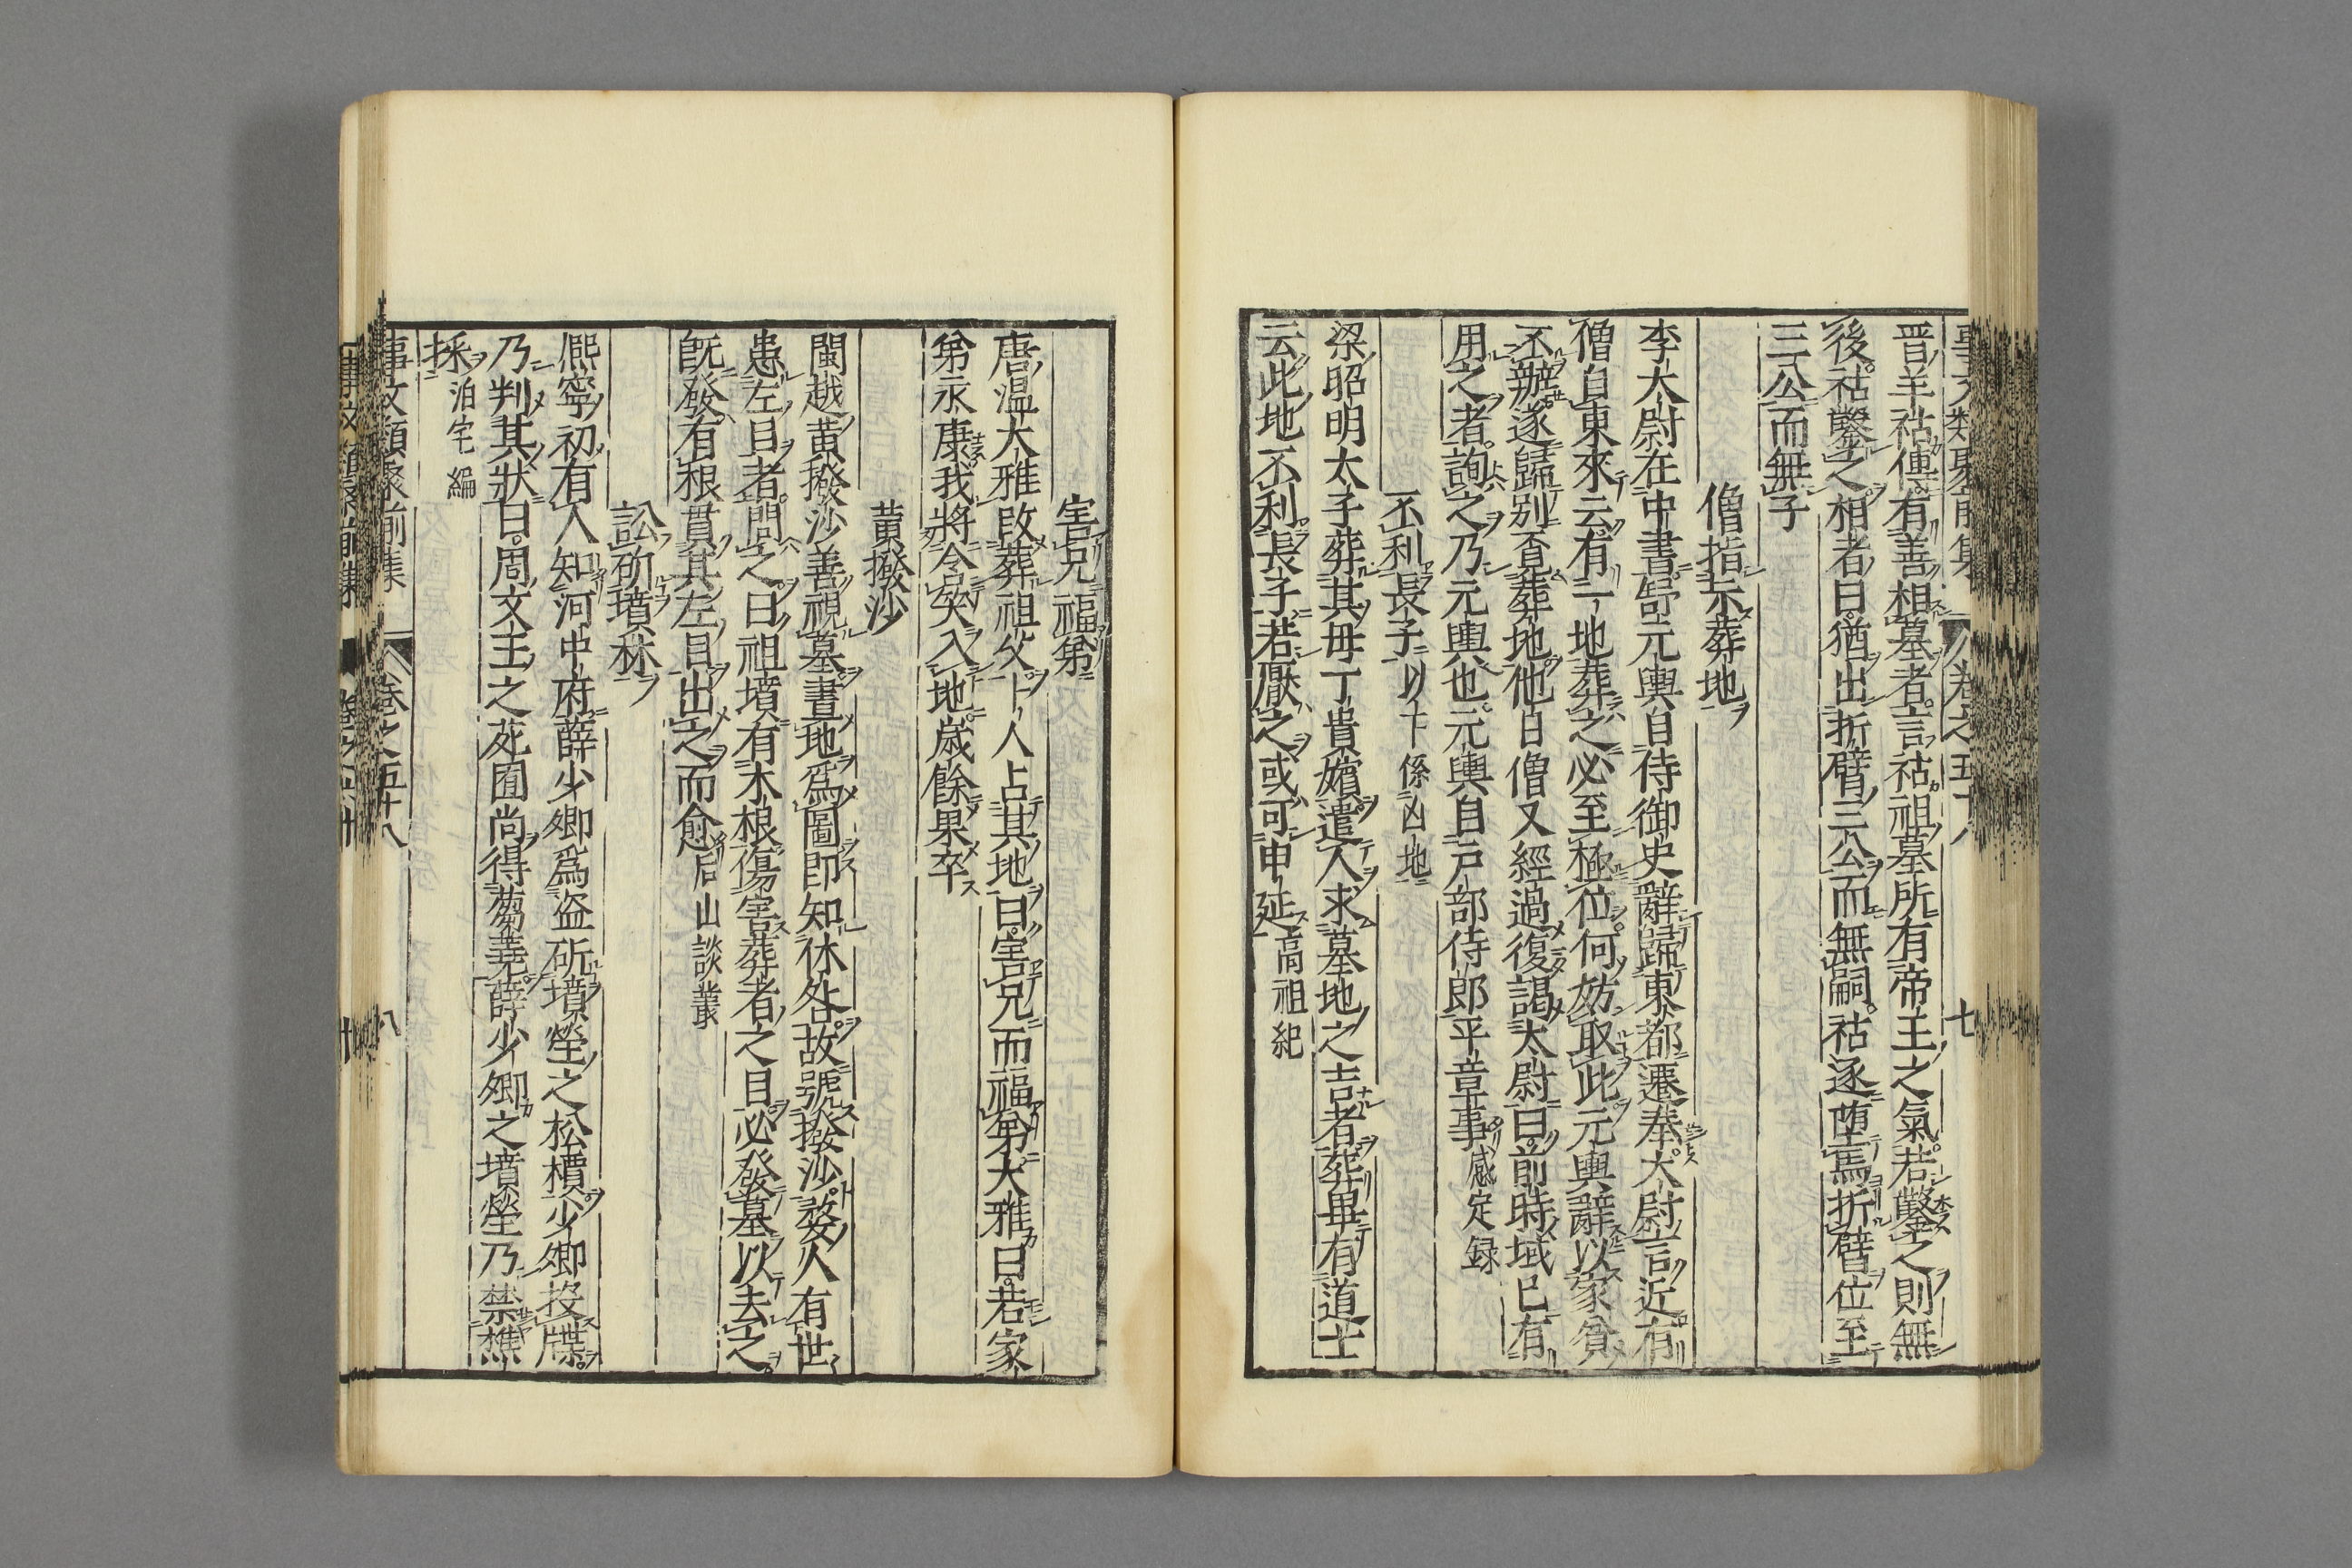 事文類聚前集 卷之五十八 七
晉羊祜傳有善相墓者言祜祖墓所有帝王之氣若鑿之則無
後祜鑿之相者曰猶出折臂三公而無嗣祜逐墮馬折臂位至
三公而無子
僧指示葬地
李太尉在中書舒元輿自侍御史辭歸東都遷奉太尉言近有
僧自東來云有一地葬之必至極位何妨取此元輿辭以家貧
不辦遂歸別覔葬地他日僧又經過復謁太尉曰前時域已有
用之者詢之乃元輿也元輿自戶部侍郎平章事感定録
不利長子以下係凶地
梁昭明太子葬其母丁貴嬪遣人求墓地之吉者葬畢有道士
云此地不利長子若厭之或可申延高祖紀
害兄福弟
唐溫大雅改葬祖父卜人占其地曰害兄而福弟大雅曰若家
弟永康我將含笑入地歲餘果卒
黃撥沙
閩越黃撥沙善視墓畫地爲圖即知休咎故號撥沙婺人有世
患左目者問之曰祖墳有木根傷害葬者之目必發墓以去之
既發有根貫其左目出之而愈后山談叢
訟斫墳林
熈寧初有人知河中府薛少卿爲盜斫墳塋之松檟少卿投牒
乃判其狀曰周文王之苑囿尚得芻蕘薛少卿之墳塋乃禁樵
採泊宅編
事文類聚前集 卷之五十八 八